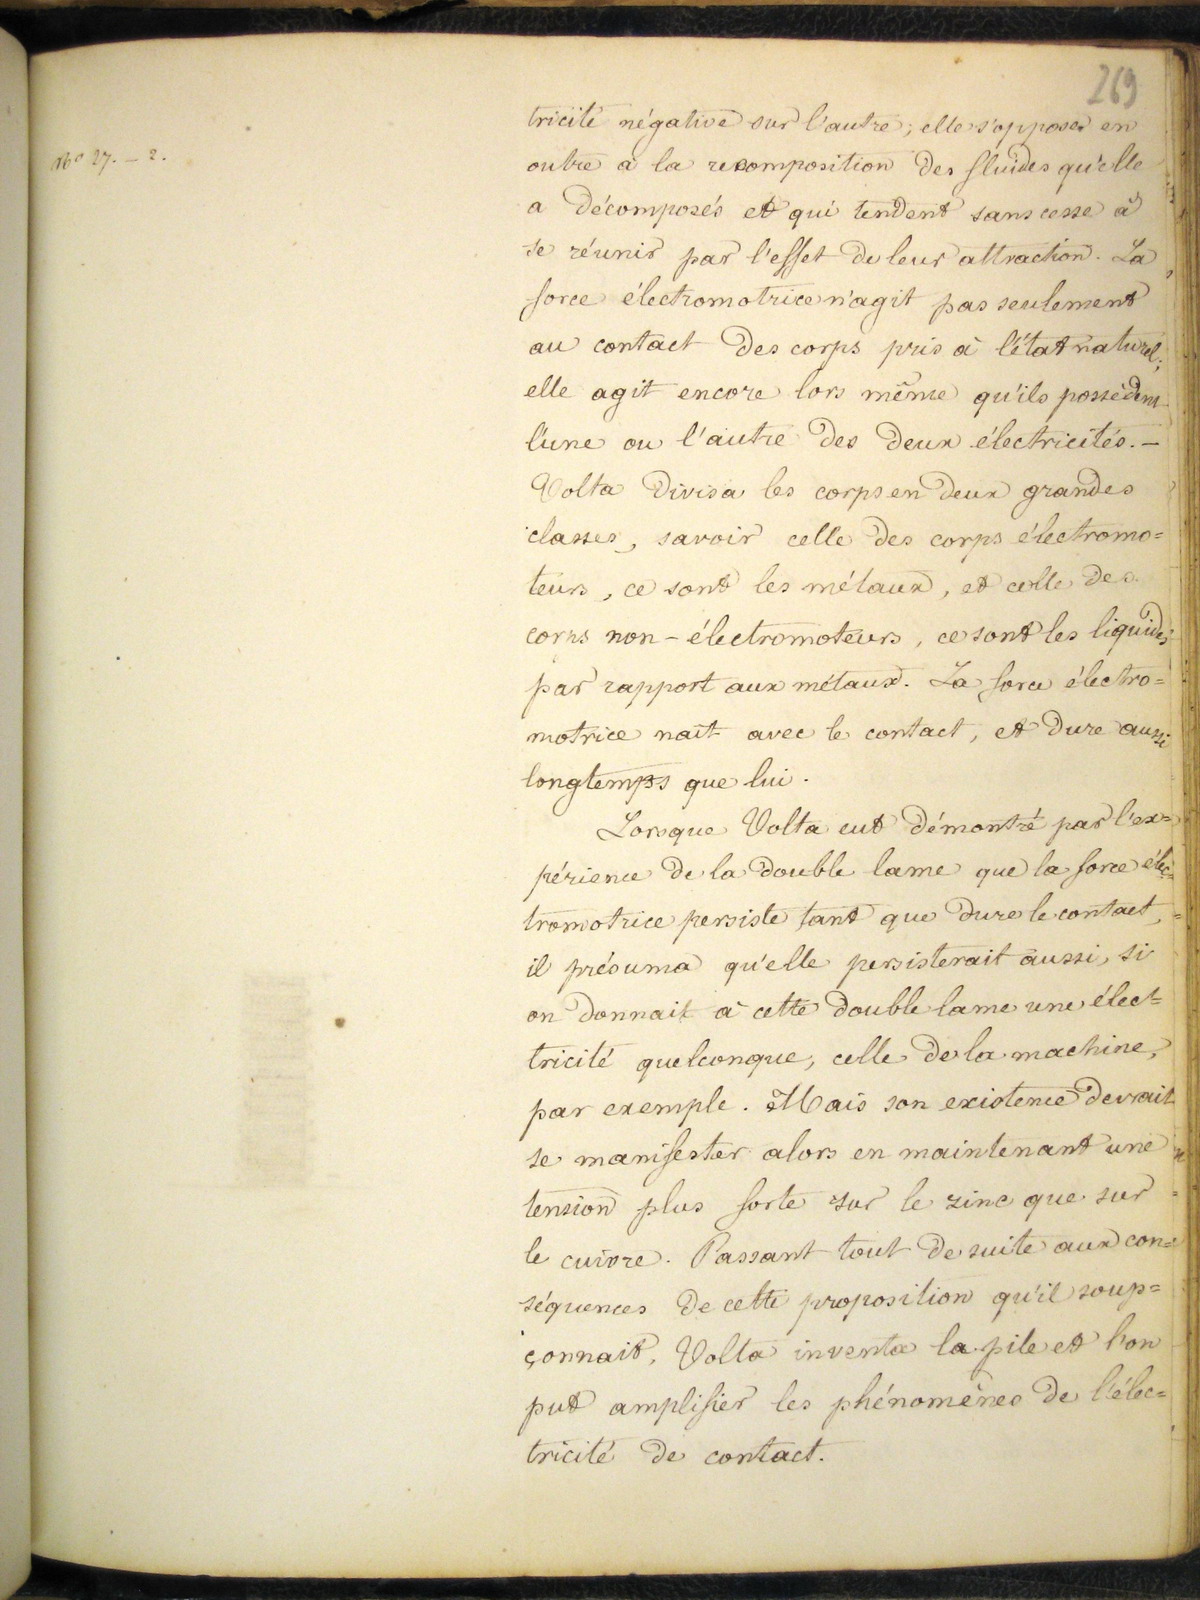 269
No 27. - 2.
tricité négative sur l'autre; elle s'oppose en
outre à la recomposition des fluides qu'elle
a décomposés et qui tendent sans cesse à
se réunir par l'effet de leur attraction. La
force électromotrice n'agit pas seulement
au contact des corps pris à l'état naturel;
elle agit encore lors même qu'ils possèdent
l'une ou l'autre des deux électricités. —
Volta divisa les corps en deux grandes
classes, savoir celle des corps électromo=
teurs, ce sont les métaux, et celle des
corps non-électromoteurs, ce sont les liquides
par rapport aux métaux. La force électro=
motrice naît avec le contact, et dure aussi
longtemps que lui.
Lorsque Volta eut démontré par l'ex=
périence de la double lame que la force élec=
tromotrice persiste tant que dure le contact,
il présuma qu'elle persisterait aussi, si
on donnait à cette double lame une élect=
tricité quelconque, celle de la machine,
par exemple. Mais son existence devrait
se manifester alors en maintenant une
tension plus forte sur le zinc que sur
le cuivre. Passant tout de suite aux con=
séquences de cette proposition qu'il soup=
çonnait, Volta inventa la pile et l'on
put amplifier les phénomènes de l'élec=
tricité de contact.